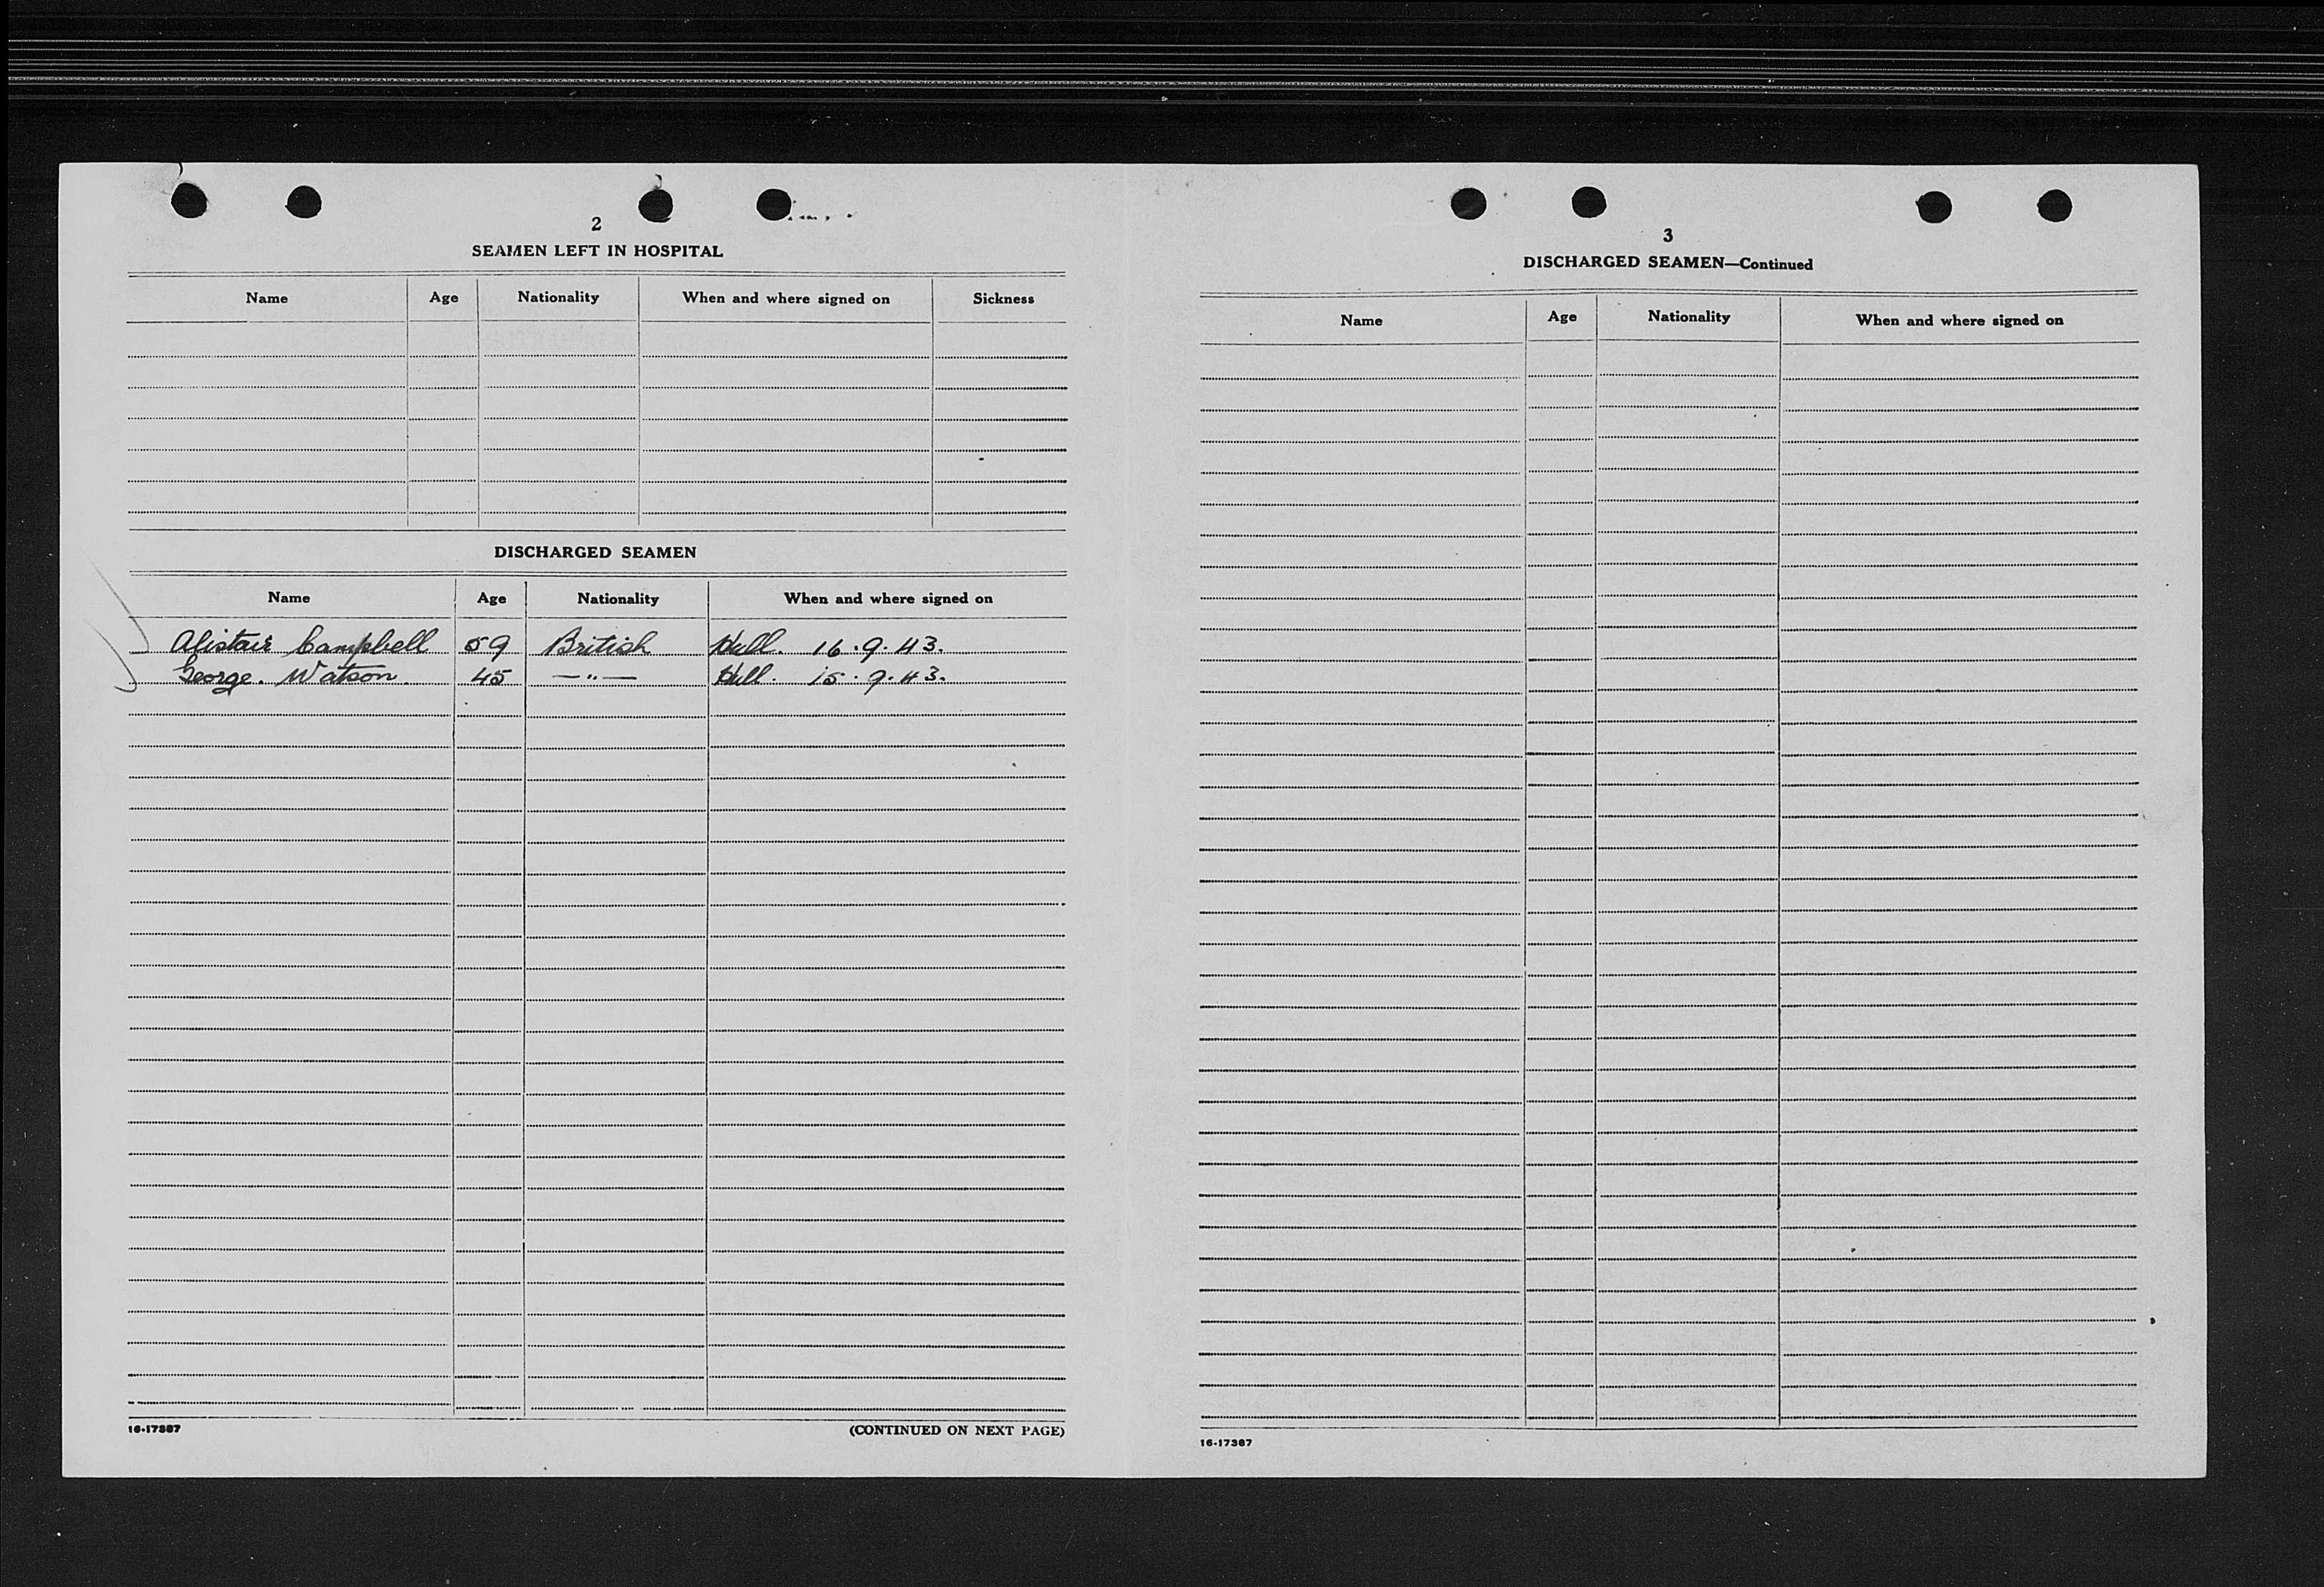 2
SEAMEN LEFT IN HOSPITAL
Name Age Nationality When and where signed on Sickness
DISCHARGED SEAMEN
Name Age Nationality When and where signed on
Alistair Campbell 59 British Hull. 16.9.43.
George. Watson. 45 —"— Hull. 15.9.43.
16-17387 (CONTINUED ON NEXT PAGE)
3
DISCHARGED SEAMEN—Continued
Name Age Nationality When and where signed on
16-17387